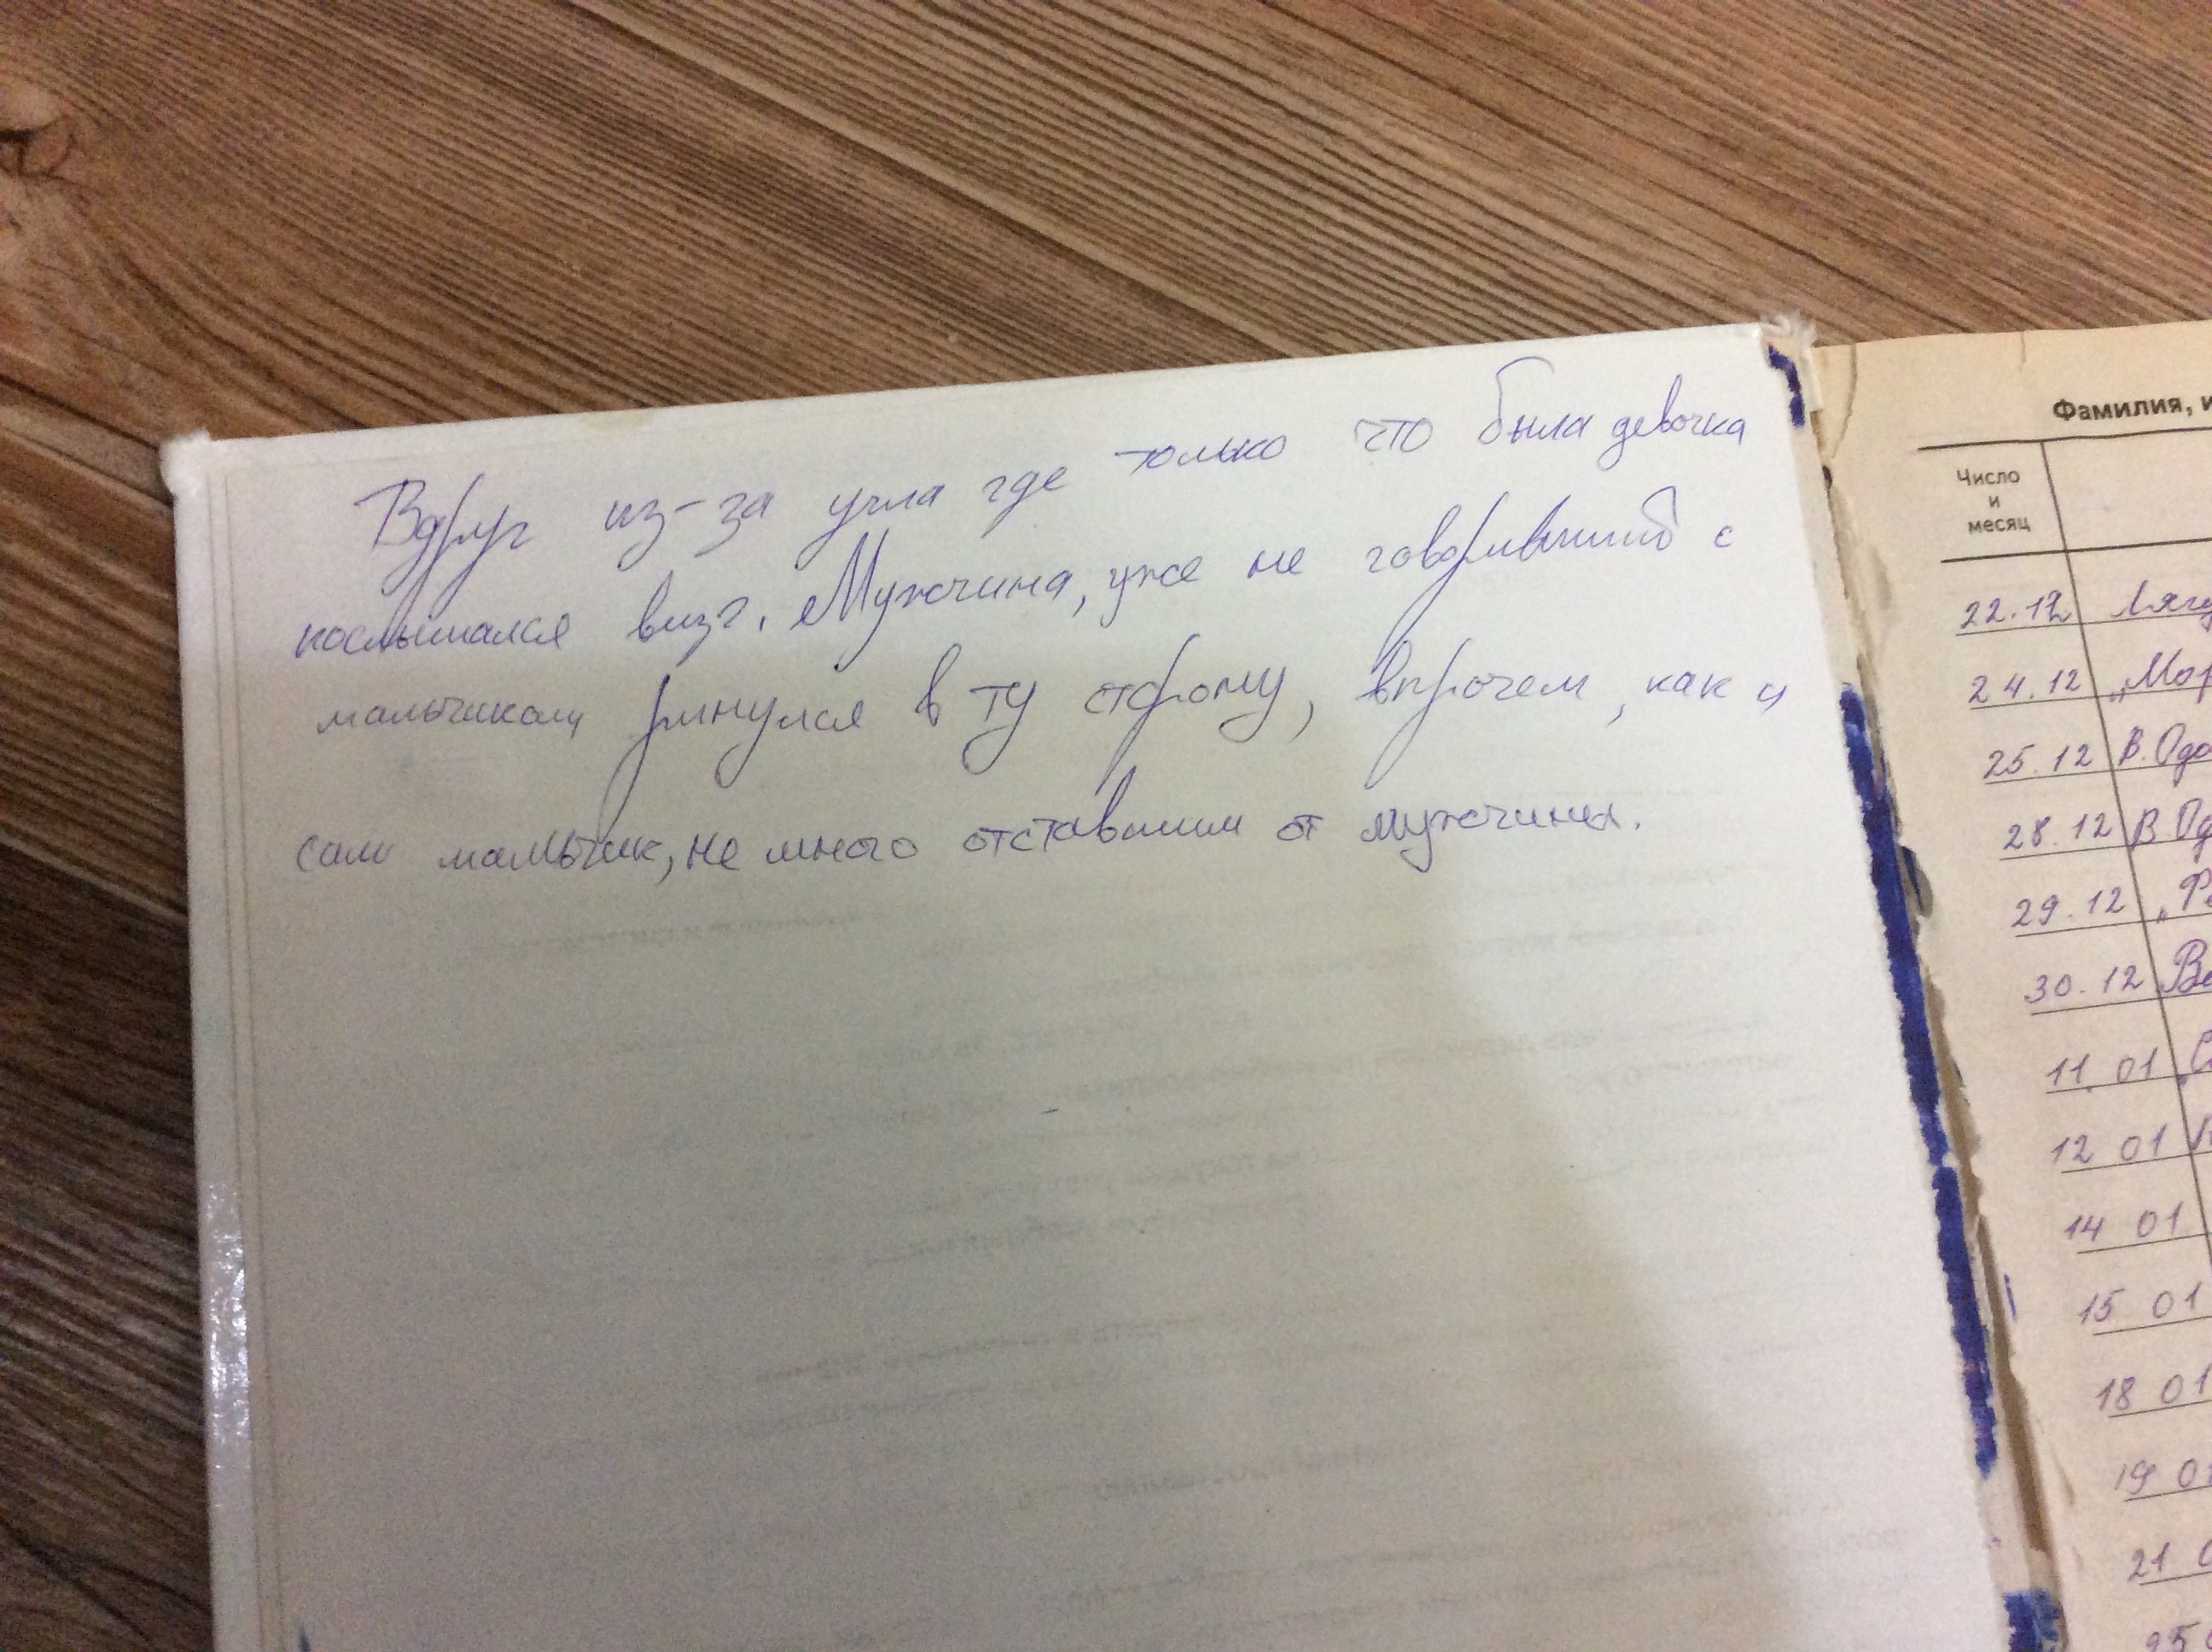 Вдруг из-за угла где только что была девочка
послышался визг. Мужчина, уже не говоривший с
мальчиком ринулся в ту сторону, впрочем, как и
сам мальчик, не много отставшим от мужчины.
Фамилия, и
Число
и
месяц
22.12 Лягу
24.12 „Мор
25.12 В. Одо
28.12 В. Од
29.12
30.12 Ве
11.01 „С
12 01
14 01
15 01
18 01
19 01
21 0